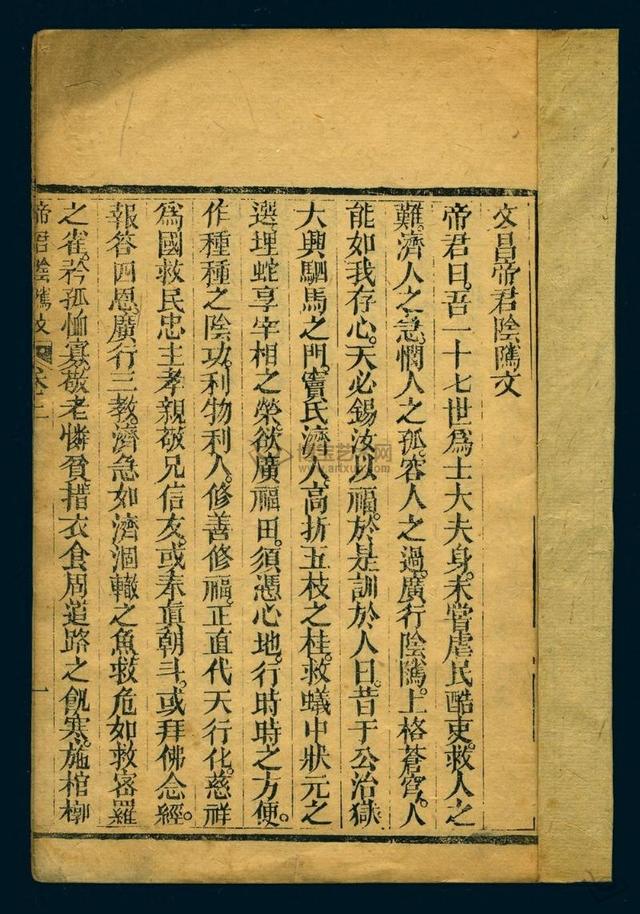 文昌帝君陰隲文
帝君曰。吾一十七世爲士大夫身。未嘗虐民酷吏。救人之
難。濟人之急。憫人之孤。容人之過。廣行陰隲。上格蒼穹。人
能如我存心。天必錫汝以福。於是訓於人曰。昔于公治獄
大興駟馬之門。竇氏濟人。高折五枝之桂。救蟻中狀元之
選。埋蛇享宰相之榮。欲廣福田。須憑心地。行時時之方便。
作種種之陰功。利物利人。修善修福。正直代天行化。慈祥
爲國救民。忠主孝親。敬兄信友。或奉眞朝斗。或拜佛念經。
報答四恩。廣行三教。濟急如濟涸轍之魚。救危如救密羅
之雀。矜孤恤寡。敬老憐貧。措衣食周道路之飢寒。施棺槨
帝君陰隲文 卷之 一
www.artxun.com